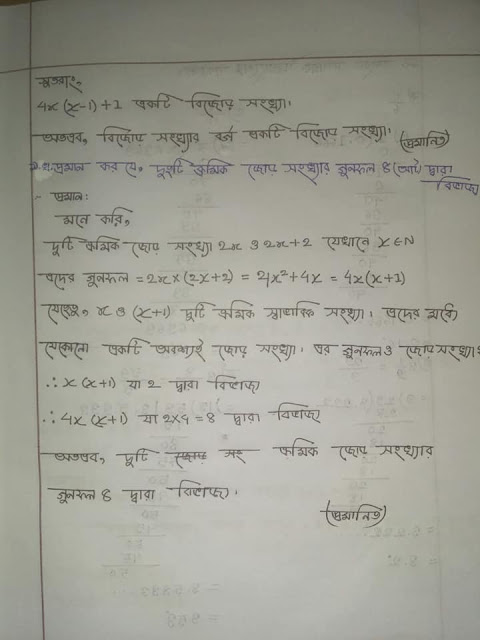 সুতরাং,
4x (x-1) + 1 একটি বিজোড় সংখ্যা।
অতএব, বিজোড় সংখ্যার বর্গ একটি বিজোড় সংখ্যা। (প্রমানিত)
প্রমান কর যে, দুইটি ক্রমিক জোড় সংখ্যার গুনফল ৪ (আট) দ্বারা
বিভাজ্য
প্রমান:
মনে করি,
দুটি ক্রমিক জোড় সংখ্যা 2x ও 2x+2 যেখানে x∈N
এদের গুনফল = 2x×(2x+2) = 4x²+4x = 4x(x+1)
যেহেতু, x ও (x+1) দুটি ক্রমিক স্বাভাবিক সংখ্যা। এদের মধ্যে
যেকোনো একটি অবশ্যই জোড় সংখ্যা। এর গুনফলও জোড় সংখ্যা।
∴ x (x+1) যা 2 দ্বারা বিভাজ্য
∴ 4x (x+1) যা 2×4 = 8 দ্বারা বিভাজ্য
অতএব, দুটি জোড় সং ক্রমিক জোড় সংখ্যার
গুনফল 8 দ্বারা বিভাজ্য।
(প্রমানিত)